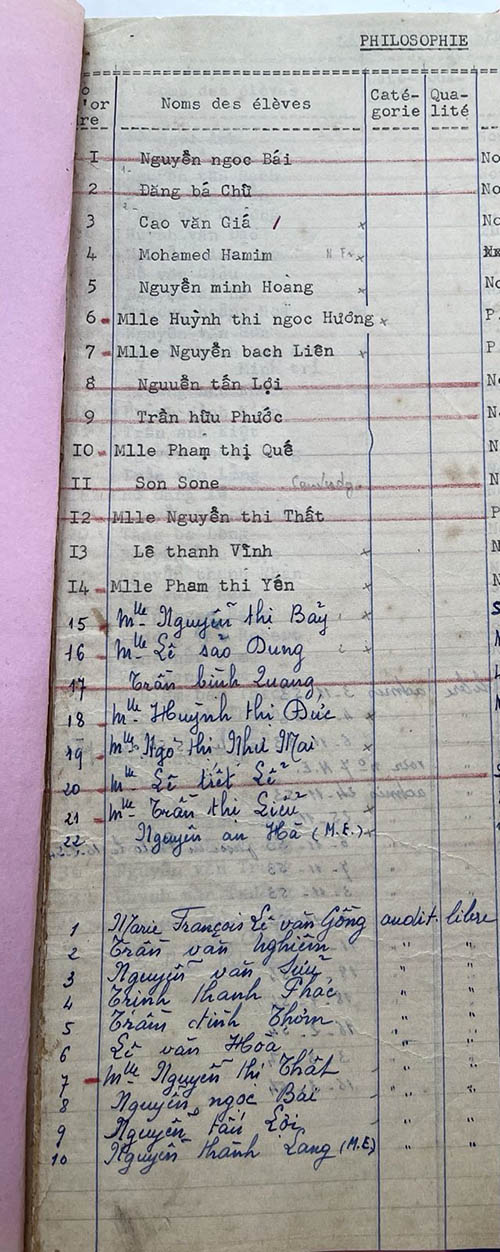 PHILOSOPHIE
Noms des élèves Caté- gorie Qua- lité
I Nguyễn ngoc Bái No
2 Đăng bá Chữ No
3 Cao văn Giá / x No
4 Mohamed Hamim x
5 Nguyễn minh Hoàng x No
6 Mlle Huỳnh thi ngoc Hương x P.
7 Mlle Nguyễn bach Liên x P
8 Nguuễn tấn Lợi N
9 Trần hữu Phước N
IO Mlle Phạm thị Quế N
II Son Sone N
I2 Mlle Nguyễn thi Thất P
I3 Lê thanh Vĩnh x N
I4 Mlle Pham thi Yén x N
15 Mlle Nguyễn thị Bảy x
16 Mlle Lê sao Dung x
17 Trần bình Quang
18 Mlle Huỳnh thị Đức x
19 Mlle Ngô thị Như Mai x
20 Mlle Lê tiết Lê
21 Mlle Trần thi Liễu x
22 Nguyễn an Hà (M.E.) x
1 Marie François Lê văn Gồng audit. libre
2 Trần văn Nghiêm " "
3 Nguyễn văn " "
4 Trinh thanh " "
5 Trần đình Thơm " "
6 Lê văn Hoà " "
7 Mlle Nguyễn thi Thất " "
8 Nguyễn ngọc Bái " "
9 Nguyễn tấn Lợi " "
10 Nguyễn thành Lang (M.E.)